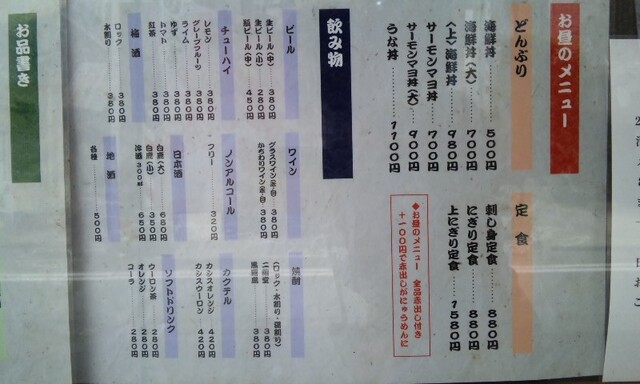 お昼のメニュー
どんぶり
海鮮丼 500円
海鮮丼(大) 700円
(上)海鮮丼 980円
サーモンマヨ丼 700円
サーモンマヨ丼(大) 900円
うな丼 1100円
定食
刺し身定食 880円
にぎり定食 880円
上にぎり定食 1580円
◆お昼のメニュー 全品赤出し付き
+100円で赤出しがにゅうめんに
飲み物
ビール
生ビール(中) 380円
生ビール(小) 280円
瓶ビール(中) 450円
チューハイ
レモン 380円
グレープフルーツ 380円
ライム 380円
ゆず 380円
トマト 380円
紅茶 380円
梅酒
ロック 380円
水割り 380円
ワイン
グラスワイン(赤・白) 380円
かちわりワイン(赤・白) 380円
ノンアルコール
フリー 320円
日本酒
白鹿(大) 680円
白鹿(小) 350円
冷酒300ml 650円
地酒
各種 500円
焼酎
(ロック・水割り・湯割り)
二階堂 380円
黒霧島 380円
カクテル
カシスオレンジ 420円
カシスウーロン 420円
ソフトドリンク
ウーロン茶 280円
オレンジ 280円
コーラ 280円
お品書き